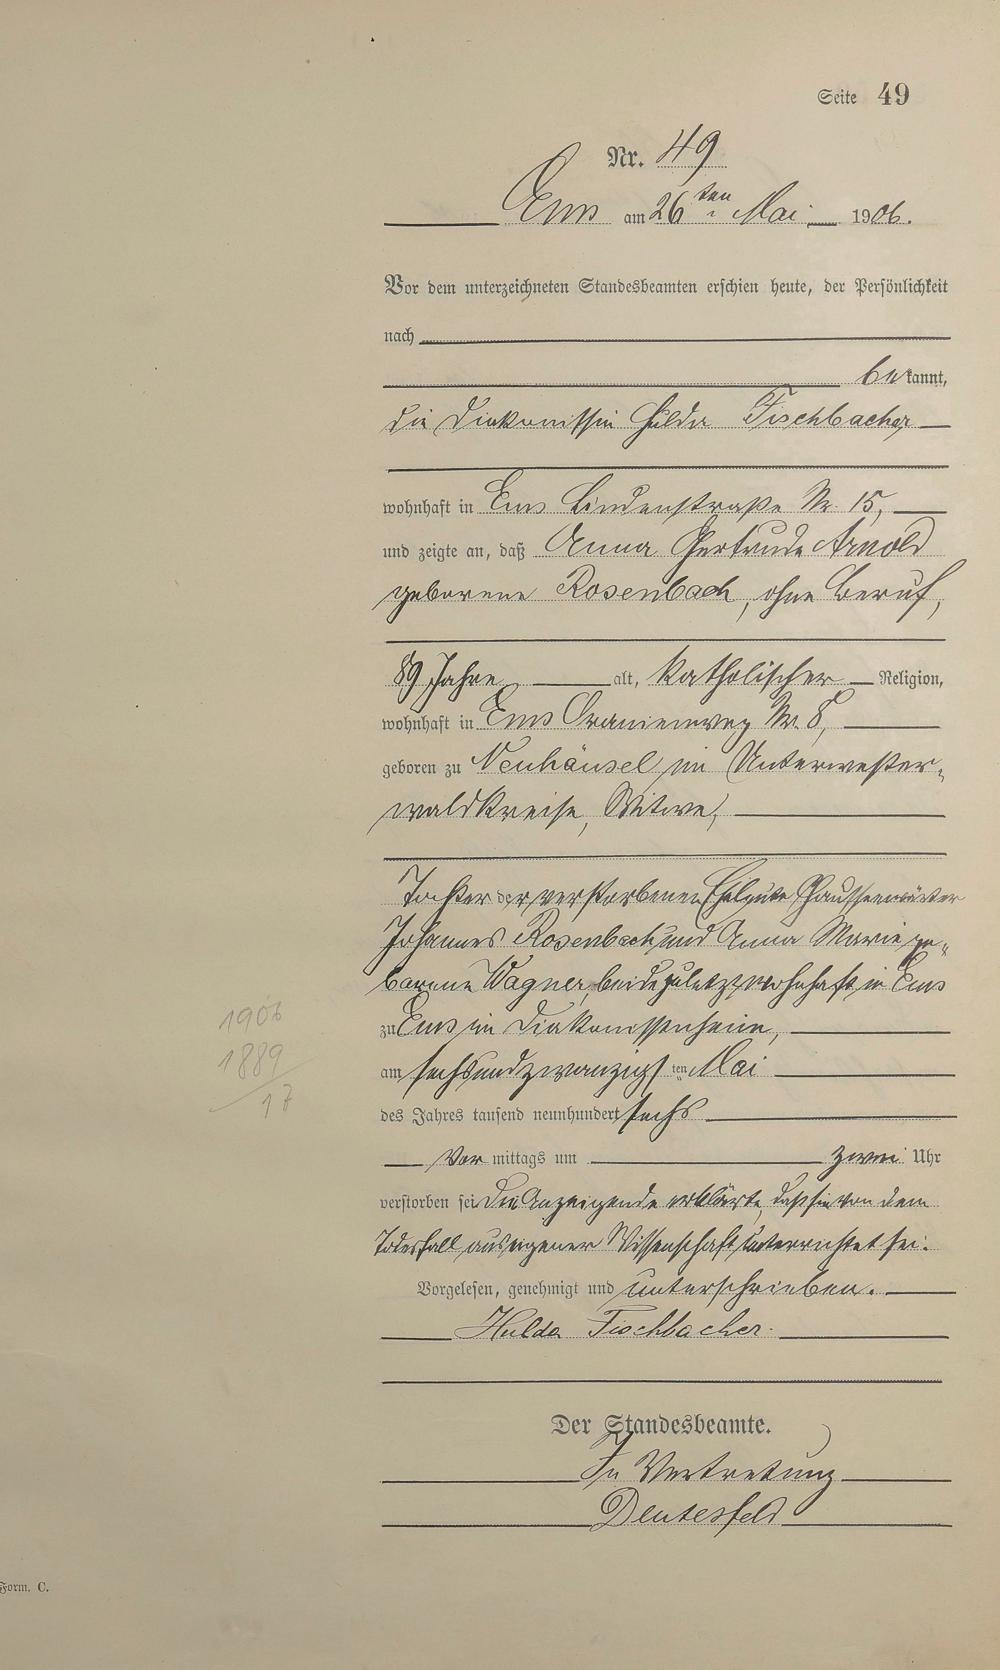 Seite 49
Nr. 49
Ems am 26ten Mai 1906.
Vor dem unterzeichneten Standesbeamten erschien heute, der Persönlichkeit
nach
bekannt,
die Diakonissin Hulda Fischbacher
wohnhaft in Ems Lindenstraße Nr. 15,
und zeigte an, daß Anna Gertrude Arnold
geborene Rosenbach, ohne Beruf,
89 Jahre alt, katholischer Religion,
wohnhaft in Ems Oranienweg Nr. 8,
geboren zu Neuhäusel im Unterwester-
waldkreise, Witwe,
Tochter der verstorbenen Eheleute Chausseewärter
Johannes Rosenbach und Anna Marie ge-
borene Wagner, beide zuletzt wohnhaft in Ems
zu Ems im Diakonissenheim,
am sechsundzwanzigsten Mai
des Jahres tausend neunhundert sechs
Vor mittags um zwei Uhr
verstorben sei. Die Anzeigende erklärte, daß sie von dem
Todesfall aus eigener Wissenschaft unterrichtet sei.
Vorgelesen, genehmigt und unterschrieben.
Hulda Fischbacher.
Der Standesbeamte.
In Vertretung
Deutesfeld
1906
1889
17
Form. C.